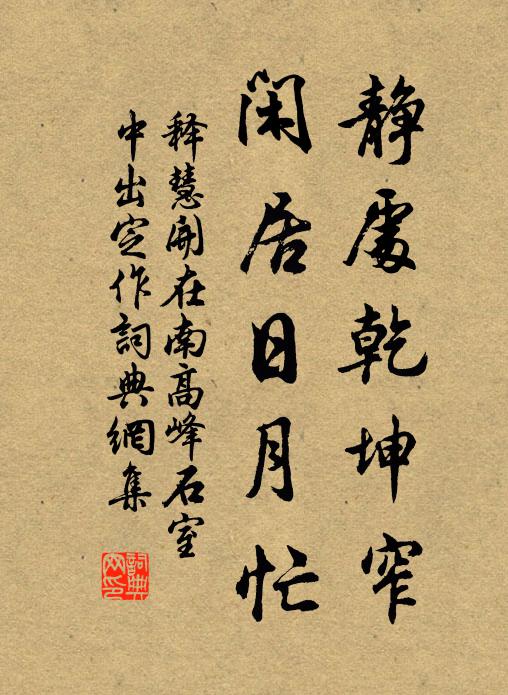 靜處乾坤窄
閑居日月忙
釋慧開在南高峰石室
中出定作詞典網集
詞典
网印